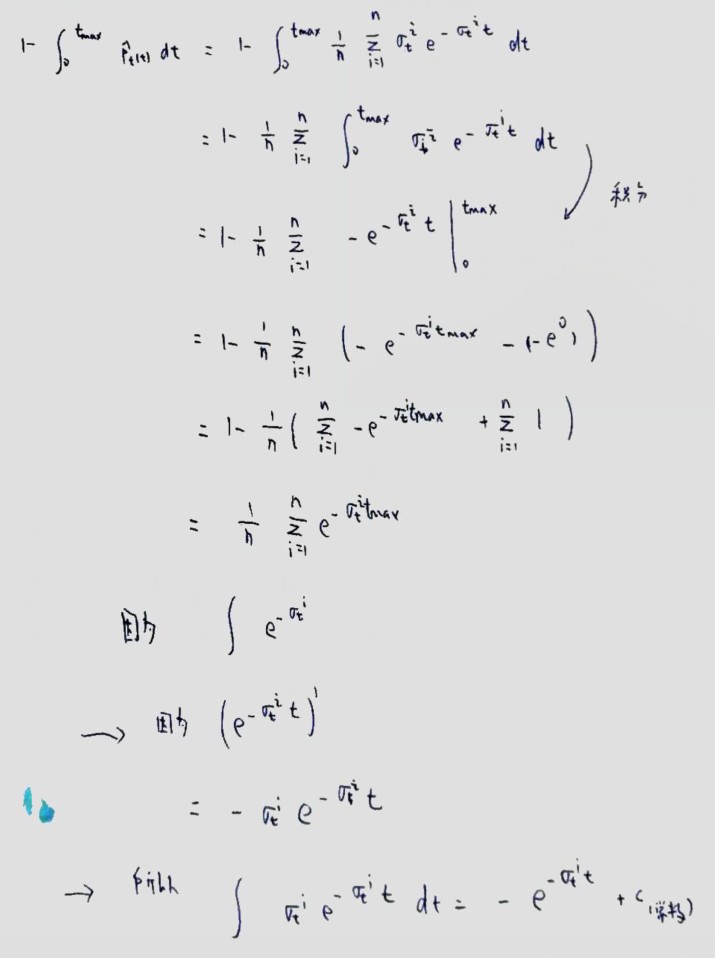 1- ∫₀^tmax p̂_t(t) dt = 1- ∫₀^tmax 1/n Σ_{i=1}^n σ_t^i e^{-σ_t^i t} dt
= 1- 1/n Σ_{i=1}^n ∫₀^tmax σ_t^i e^{-σ_t^i t} dt
积分
= 1- 1/n Σ_{i=1}^n -e^{-σ_t^i t} |₀^tmax
= 1- 1/n Σ_{i=1}^n (-e^{-σ_t^i tmax} - (-e^0))
= 1- 1/n ( Σ_{i=1}^n -e^{-σ_t^i tmax} + Σ_{i=1}^n 1 )
= 1/n Σ_{i=1}^n e^{-σ_t^i tmax}
因为 ∫ e^{-σ_t^i}
→ 因为 (e^{-σ_t^i t})'
= - σ_t^i e^{-σ_t^i t}
→ 所以 ∫ σ_t^i e^{-σ_t^i t} dt = - e^{-σ_t^i t} + c (常数)